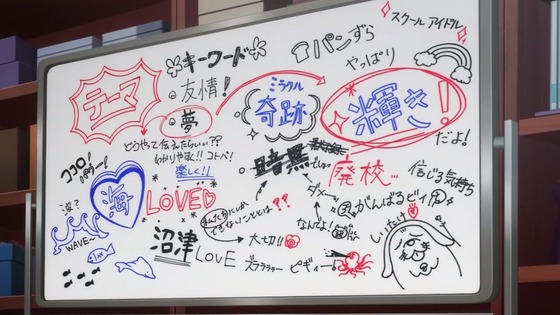 スクールアイドル
キーワード
パンずら
やっぱり
テーマ
友情!
ミラクル
奇跡
輝き!
夢
だよ!
どうやって伝えたらいい??
わかりやすく!! コトバ!
楽しく!!
暗黒
では
廃校…
信じる気持ち
ココロ!
海
LOVE
ダメー
がんばるビィ
波?
WAVE~
わたしたちにしか
できないことは??
なんでよ!
しいたけ
沼津
LOVE
大切!!
ズラララララ
ピギィー